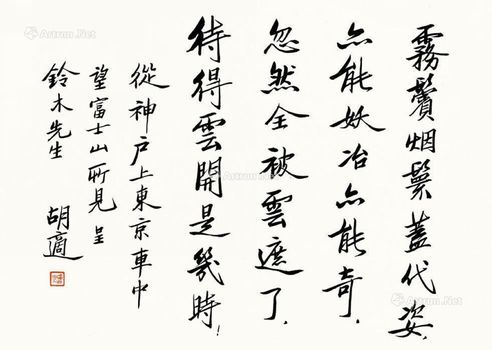 霧鬢烟鬟蓋代姿,
亦能妖冶亦能奇.
忽然全被雲遮了,
待得雲開是幾時!
從神戶上東京車中
望富士山所見 呈
鈴木先生
胡適
Artron.Net
Artron.Net
Artron.Net